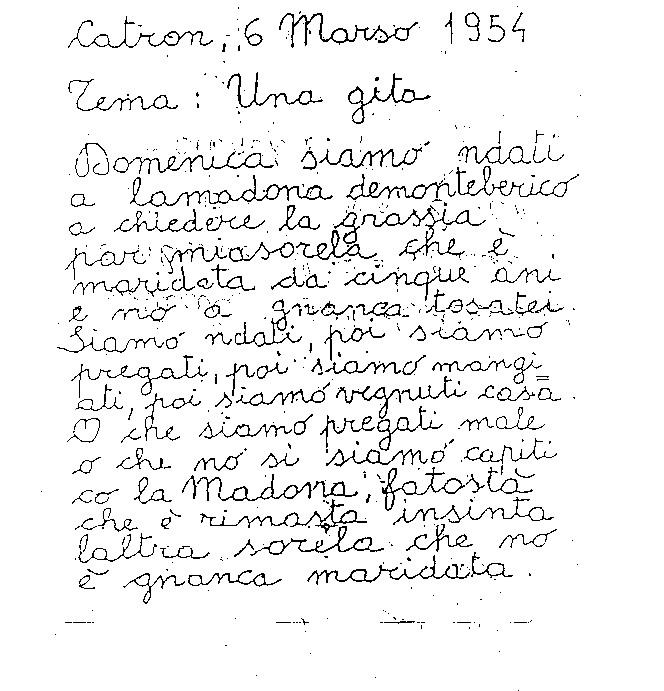 Catron, 6 Marso 1954
Tema: Una gita
Domenica siamo ndati
a lamadona demonteberico
a chiedere la grassia
par miasorela che è
maridata da cinque ani
e no à gnanca tosatei.
Siamo ndati, poi siamo
pregati, poi siamo mangi
ati, poi siamo vegnuti casa.
O che siamo pregati male
o che no si siamo capiti
co la Madona, fatostà
che è rimasta insinta
laltra sorela che no
è gnanca maridata.